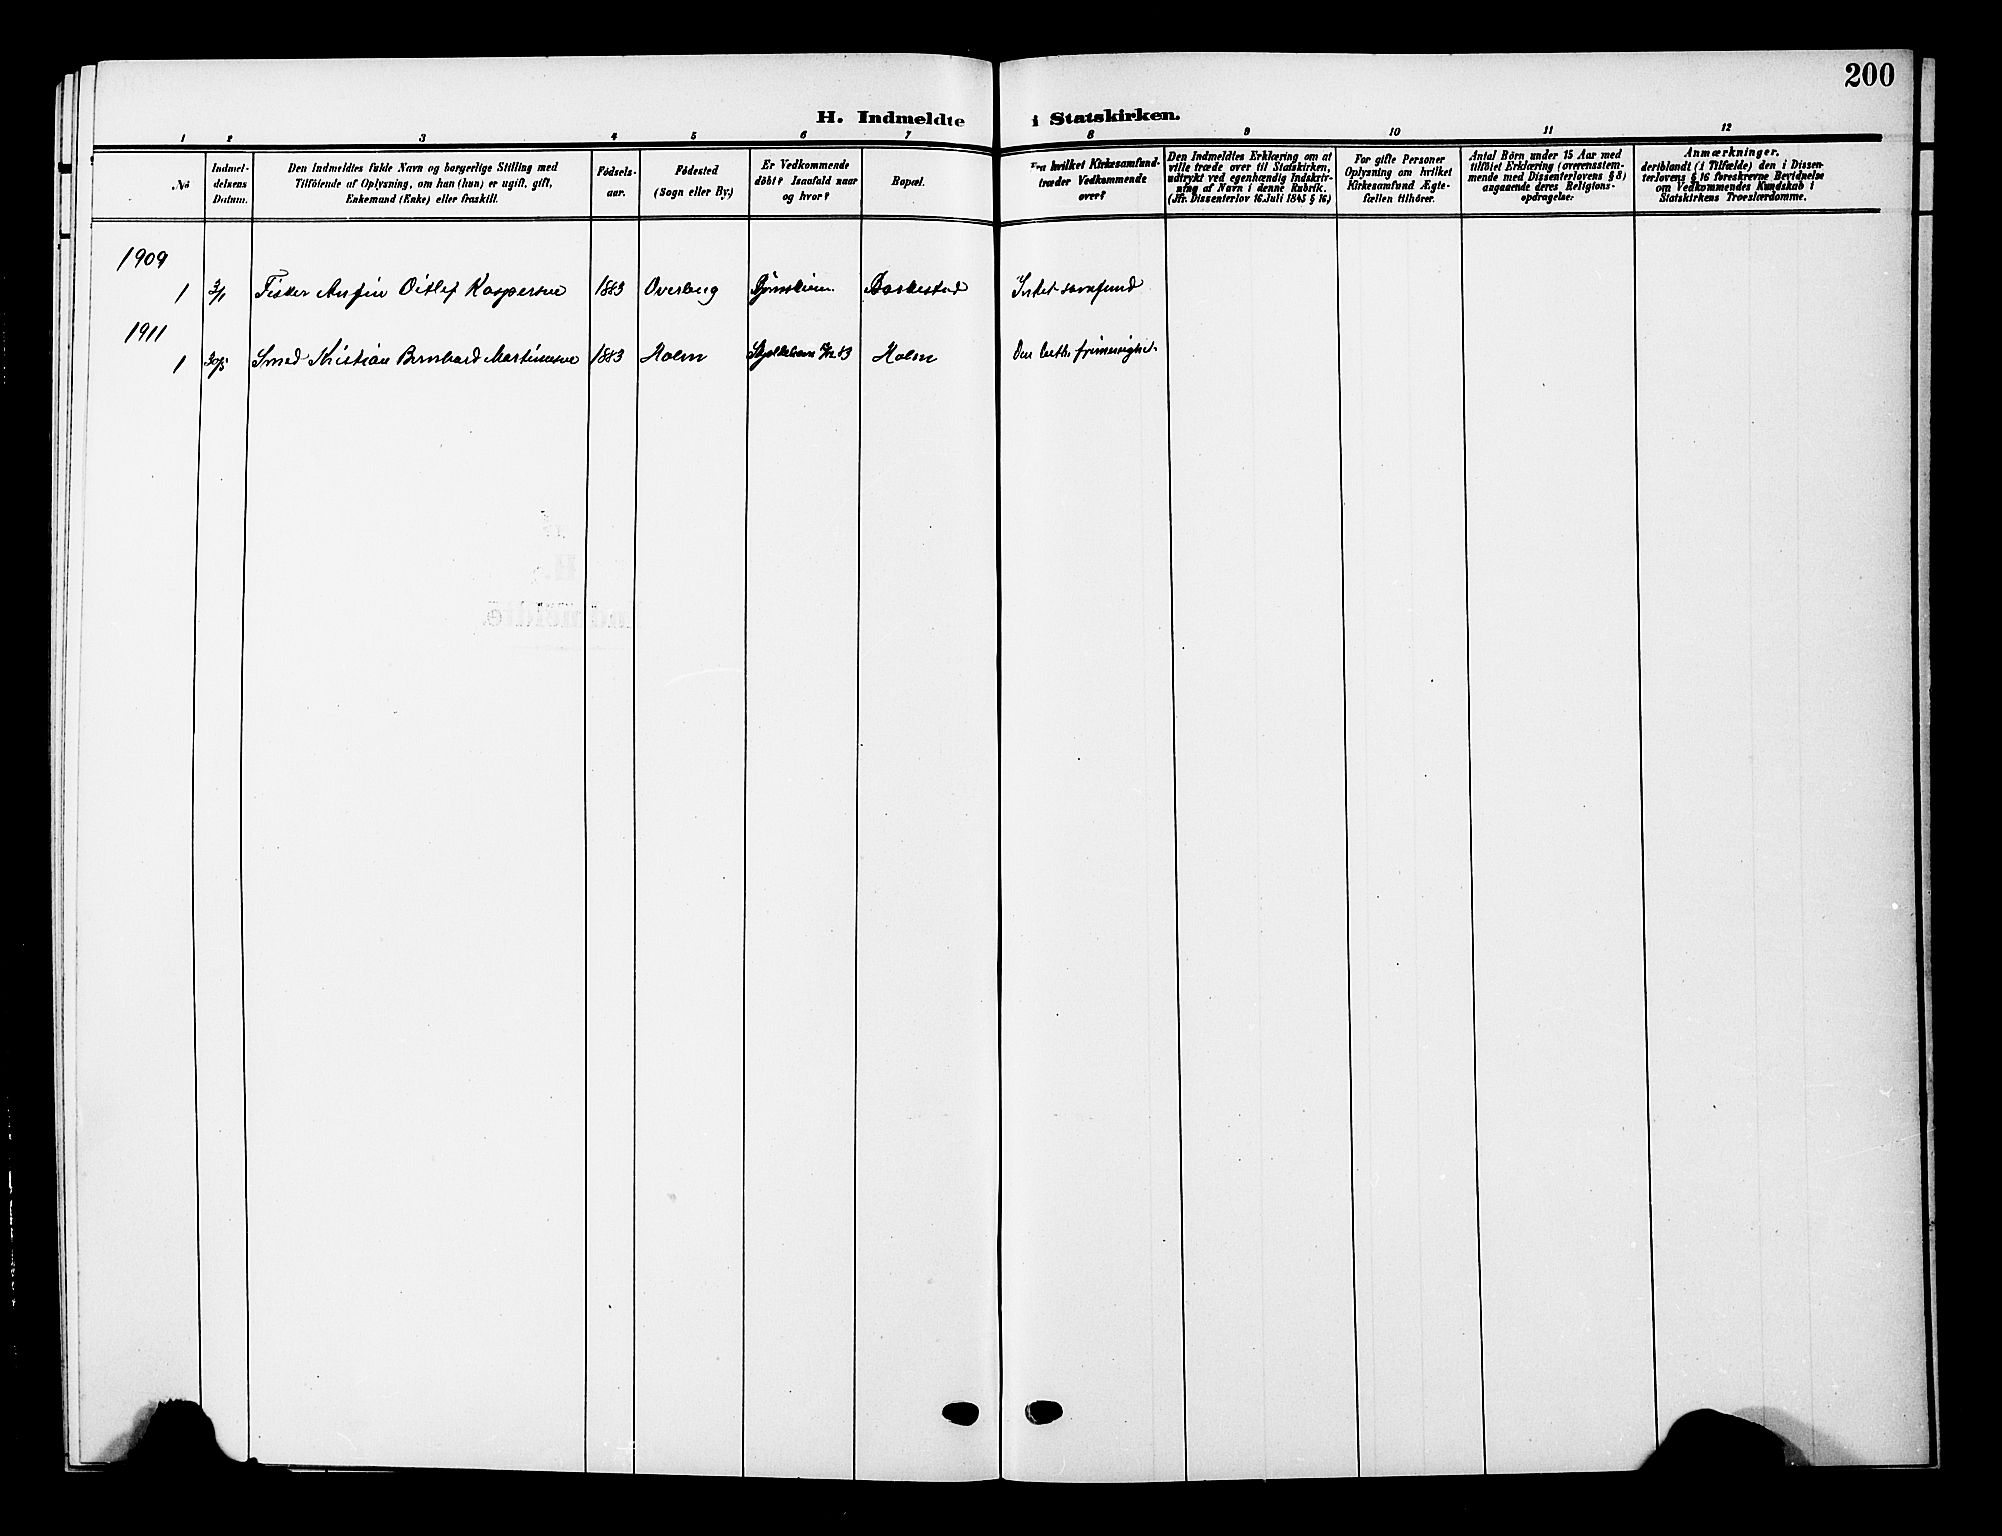 200
H. Indmeldte i Statskirken.
1 2 3 4 5 6 7 8 9 10 11 12
No
Indmel-
delsens
Datum.
Den Indmeldtes fulde Navn og borgerlige Stilling med
Tilföiende af Oplysning, om han (hun) er ugift, gift,
Enkemand (Enke) eller fraskilt.
Födsels-
aar.
Födested
(Sogn eller By.)
Er Vedkommende
döbt? Isaafald naar
og hvor?
Bopæl.
hvilket Kirkesamfund
træder Vedkommende
over?
Den Indmeldtes Erklæring om at
ville træde over til Statskirken,
udtrykt ved egenhændig Indskriv-
ning af Navn i denne Rubrik.
(Jfr. Dissenterlov 16. Juli 1845 § 16)
For gifte Personer
Oplysning om hvilket
Kirkesamfund Ægte-
fællen tilhörer.
Antal Börn under 15 Aar med
tilföiet Erklæring (overensstem-
mende med Dissenterlovens § 8)
angaaende deres Religions-
opdragelse:
Anmærkninger.
deriblandt (i Tilfælde) den i Dissen-
terlovens § 16 foreskrevne Bevidnelse
om Vedkommendes Kundskab i
Statskirkens Troeslærdomme.
1909
1 3/1 Fisker Anfin Ditlef Kaspersen 1883 Overberg Intet samfund
1911
1 Smed Kristian Bernhard Martinsen 1883 Holm Holm Den luth. frimenighet